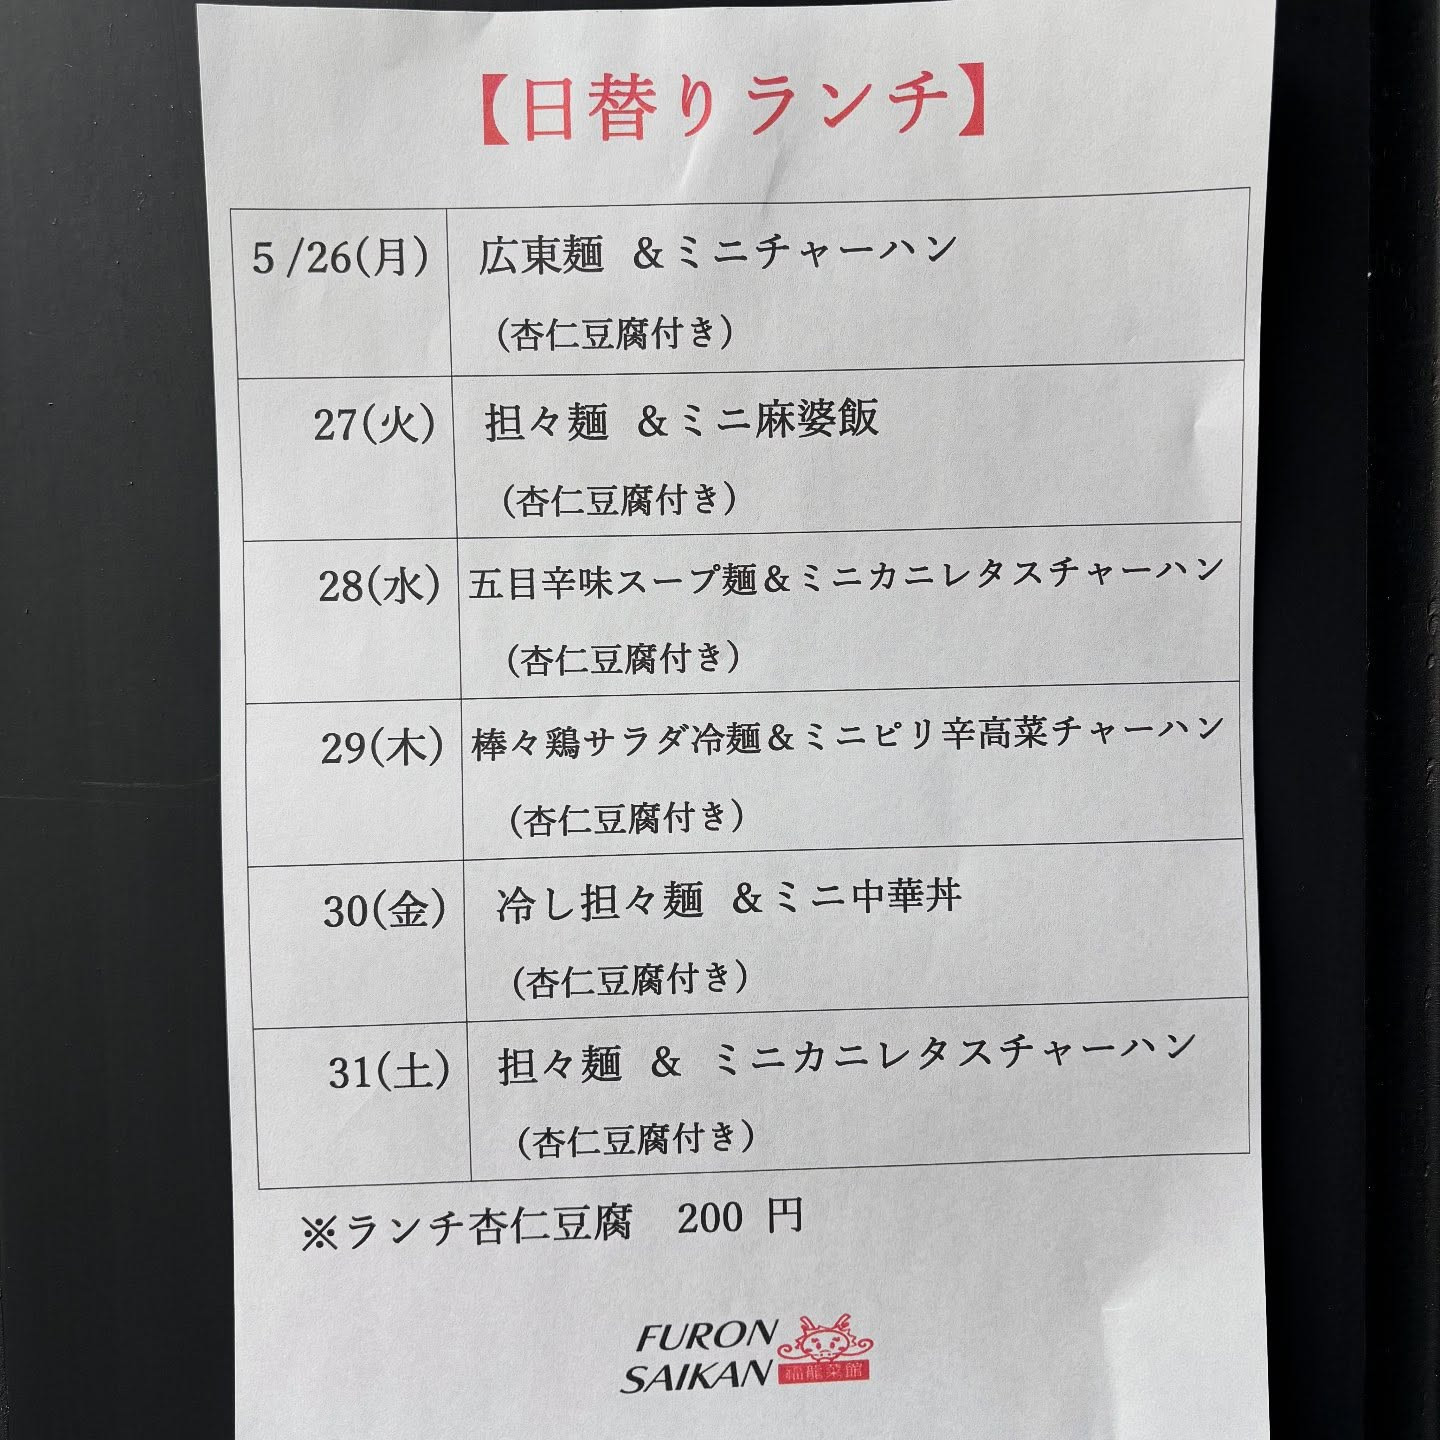 【日替りランチ】
5/26(月) 広東麺 &ミニチャーハン
(杏仁豆腐付き)
27(火) 担々麺 &ミニ麻婆飯
(杏仁豆腐付き)
28(水) 五目辛味スープ麺&ミニカニレタスチャーハン
(杏仁豆腐付き)
29(木) 棒々鶏サラダ冷麺&ミニピリ辛高菜チャーハン
(杏仁豆腐付き)
30(金) 冷し担々麺 &ミニ中華丼
(杏仁豆腐付き)
31(土) 担々麺 & ミニカニレタスチャーハン
(杏仁豆腐付き)
※ランチ杏仁豆腐 200 円
FURON
SAIKAN
福龍菜館